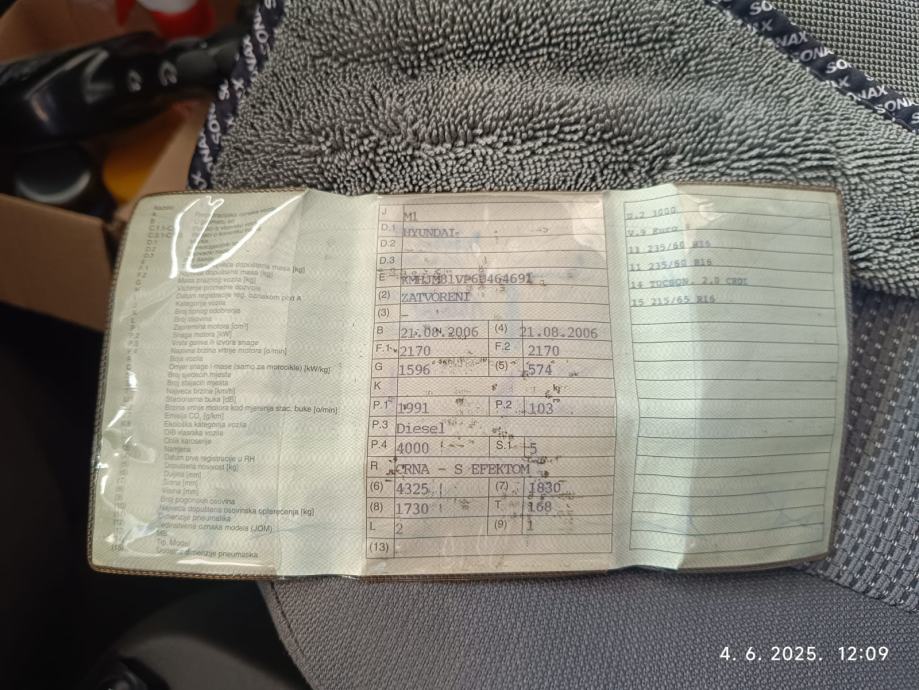 SONAX
SONAX
SONAX
SONAX
najveća dopuštena masa [kg]
Masa praznog vozila [kg]
Datum registracije reg. oznakom pod A
Kategorija vozila
Broj osovina
Zapremina motora [cm³]
Snaga motora [kW]
Vrsta goriva ili izvora snage
Nazivna brzina vrtnje motora [o/min]
Boja vozila
Omjer snage i mase (samo za motocikle) [kW/kg]
Broj sjedećih mjesta
Broj stajaćih mjesta
Najveća brzina [km/h]
Stacionarna buka [dB]
Brzina vrtnje motora kod mjerenja stac. buke [o/min]
Emisija CO₂ [g/km]
Ekološka kategorija vozila
OIB vlasnika vozila
Oblik karoserije
Namjena
Datum prve registracije u RH
Dopuštena nosivost [kg]
Duljina [mm]
Širina [mm]
Visina [mm]
Broj pogonskih osovina
Najveća dopuštena osovinska opterećenja [kg]
Dimenzije pneumatika
Jedinstvena oznaka modela (JOM)
Tip, Model
Dodatne dimenzije pneumatika
J M1
D.1 HYUNDAI-
D.2
D.3
E KMHJM81VP6U464691
(2) ZATVORENI
(3) –
B 21.08.2006 (4) 21.08.2006
F.1 2170 F.2 2170
G 1596 (5) 574
K
P.1 1991 P.2 103
P.3 Diesel
P.4 4000 S.1 5
R CRNA - S EFEKTOM
(6) 4325 (7) 1830
(8) 1730 T 168
L 2 (9) 1
(13)
11 235/60 R16
11 235/60 R16
14 TUCSON, 2,0 CRDI
15 215/65 R16
4. 6. 2025. 12:09